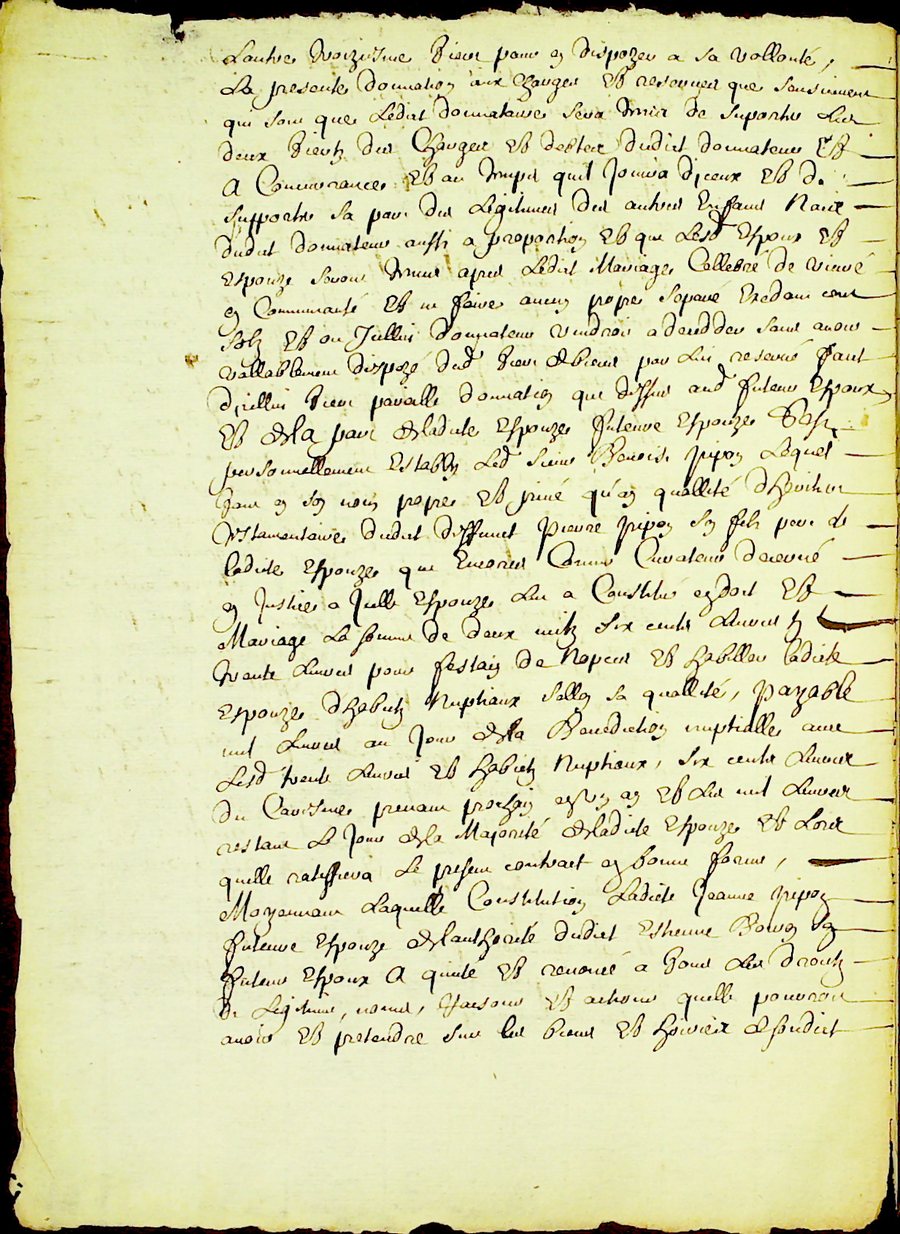 Lautre troizisme tiers pour en dispozer a sa vollonté,
La presente donnation aux charges et reserves que sensuivent
qui sont que Ledict donnataire sera tenu de suporter Les
deux tiers des Charges et debtes dudict donnateur et
A Concurrance et au temps quil Jouira diceux et de
supporter sa part des Legitimes des autres Enfans Naiz
dudict donnateur aussi a proportion et que Lesd Espoux et
Espouze seront tenus apres Ledict Mariage Cellebré de vivre
en Communauté et ne faire aucun propre separé Excedant cent
solz et ou Icelluy donnateur viendroit a decedder sans avoir
vallablement dispozé dud tiers de biens par luy reservé faict
dicelluy tiers pareille donnation que dessus aud futeur Espoux
et de la part de ladicte Espouze futeure Espouze s'est
personnellement Estably Led sieur Benoist pipon Lequel
tant en son nom propre et privé qu'en quallité dheritier
testamentaire dudict deffunct pierre pipon son filz pere de
ladicte Espouze que Encores Comme Curateur decerné
en Justice a Icelle Espouze luy a Constitué en dot et
Mariage La somme de deux mil six cents Livres
trente Livres pour festain de Nopces et habiller ladicte
Espouze dhabitz Nuptiaux sellon sa quallité, payable
mil Livres au Jour de la Benediction nuptialle avec
Lesd trente Livres et habitz Nuptiaux, six cents Livres
du Caresme prenant prochain en un an et Les mil Livres
restant Le Jour de la Majorité de ladicte Espouze et Lors
quelle ratiffiera Le present contract en bonne forme,
Moyennant Laquelle Constitution Ladicte Jeanne pipon
futeure Espouze de lauthorité dudict Estienne son
futeur Espoux A quitté et renoncé a tous Les droictz
de Legitime, noms, raisons et actions quelle pourroit
avoir et pretendre sur les biens et hoiries de sondict